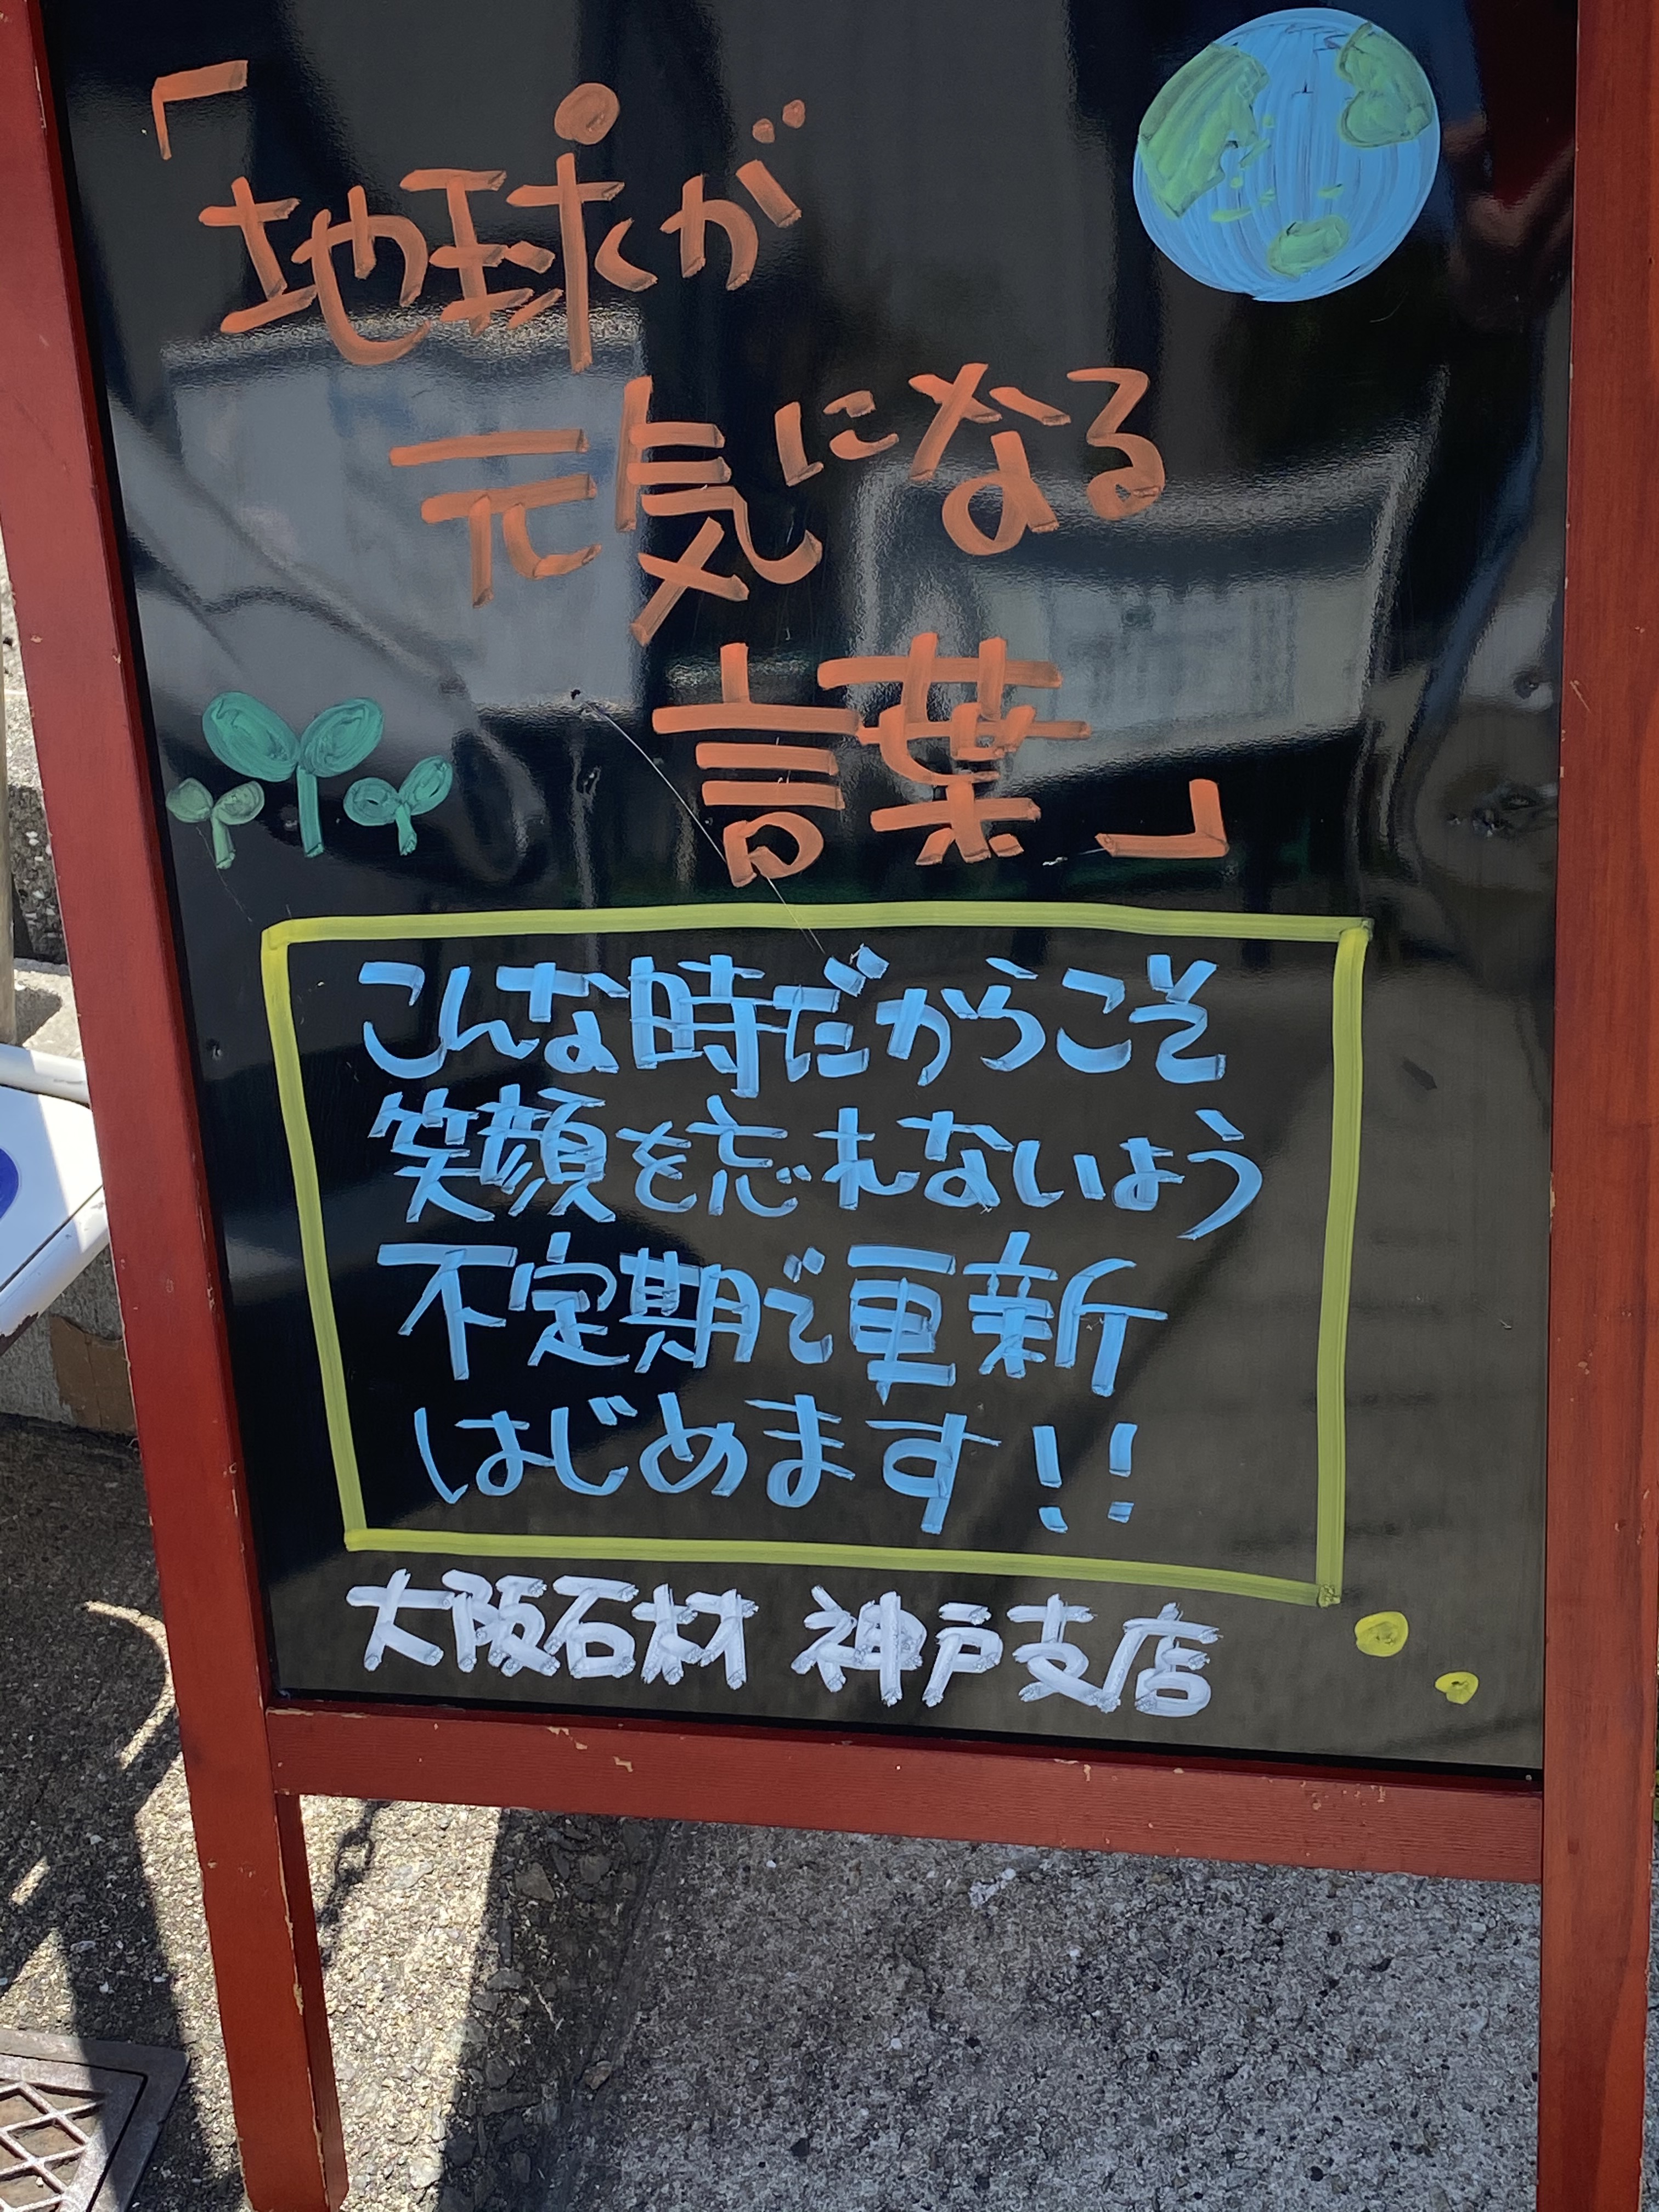 「地球が
元気になる
言葉」
こんな時だからこそ
笑顔を忘れないよう
不定期で更新
はじめます!!
大阪石材 神戸支店